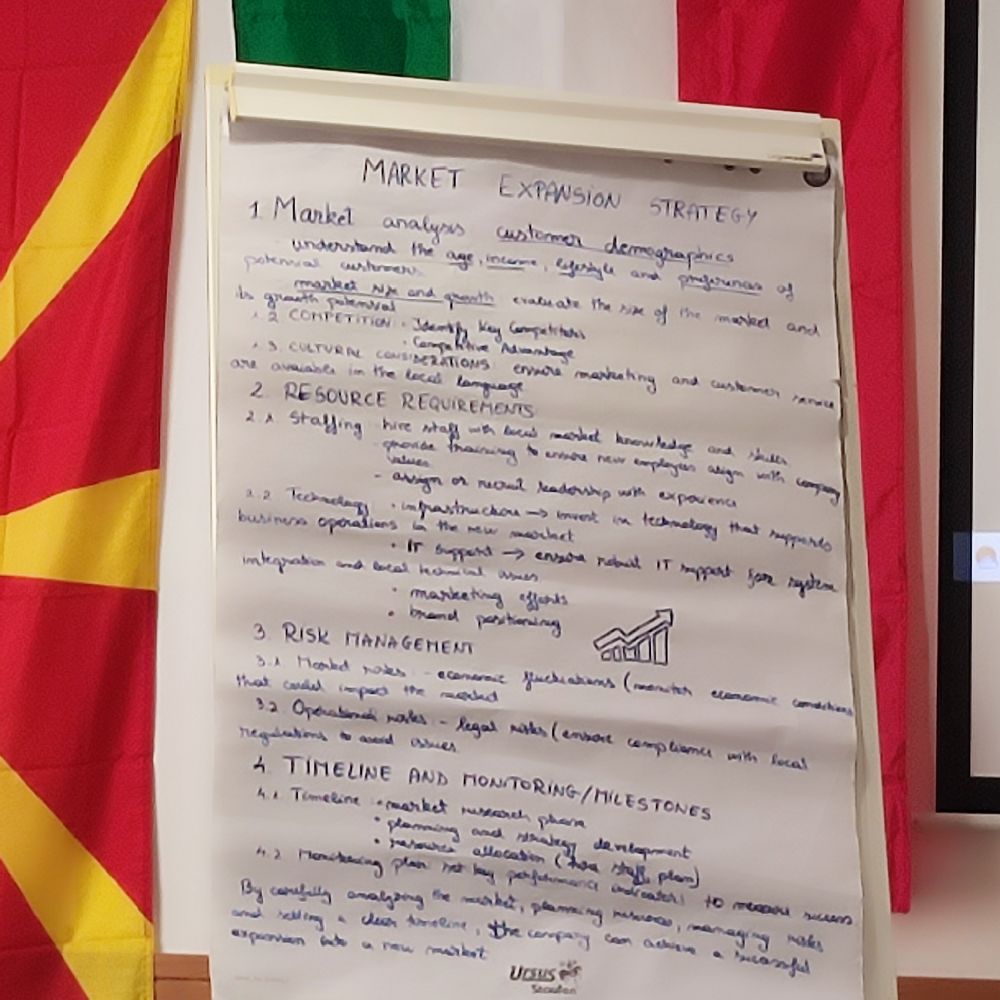 MARKET EXPANSION STRATEGY
1. Market analysis customer demographics
understand the age, income, lifestyle and preferences of
potential customers
market size and growth evaluate the size of the market and
its growth potential
1.2 COMPETITION • Identify Key Competitors
• Competitive Advantage
1.3. CULTURAL CONSIDERATIONS: ensure marketing and customer service
are available in the local language
2. RESOURCE REQUIREMENTS
2.1. Staffing - hire staff with local market knowledge and skills
- provide training to ensure new employees align with company
values
- assign or recruit leadership with experience
2.2 Technology • infrastructure → invest in technology that supports
business operations in the new market
• IT support → ensure robust IT support for system
integration and local technical issues
• marketing efforts
• brand positioning
3. RISK MANAGEMENT
3.1. Market risks - economic fluctuations (monitor economic conditions
that could impact the market
3.2. Operational risks - legal risks (ensure compliance with local
regulations to avoid issues
4. TIMELINE AND MONITORING/MILESTONES
4.1. Timeline • market research phase
• planning and strategy development
• resource allocation (hire staff, plan)
4.2 Monitoring plan set key performance indicators to measure success
By carefully analyzing the market, planning resources, managing risks
and setting a clear timeline, the company can achieve a successful
expansion into a new market.
Ursus